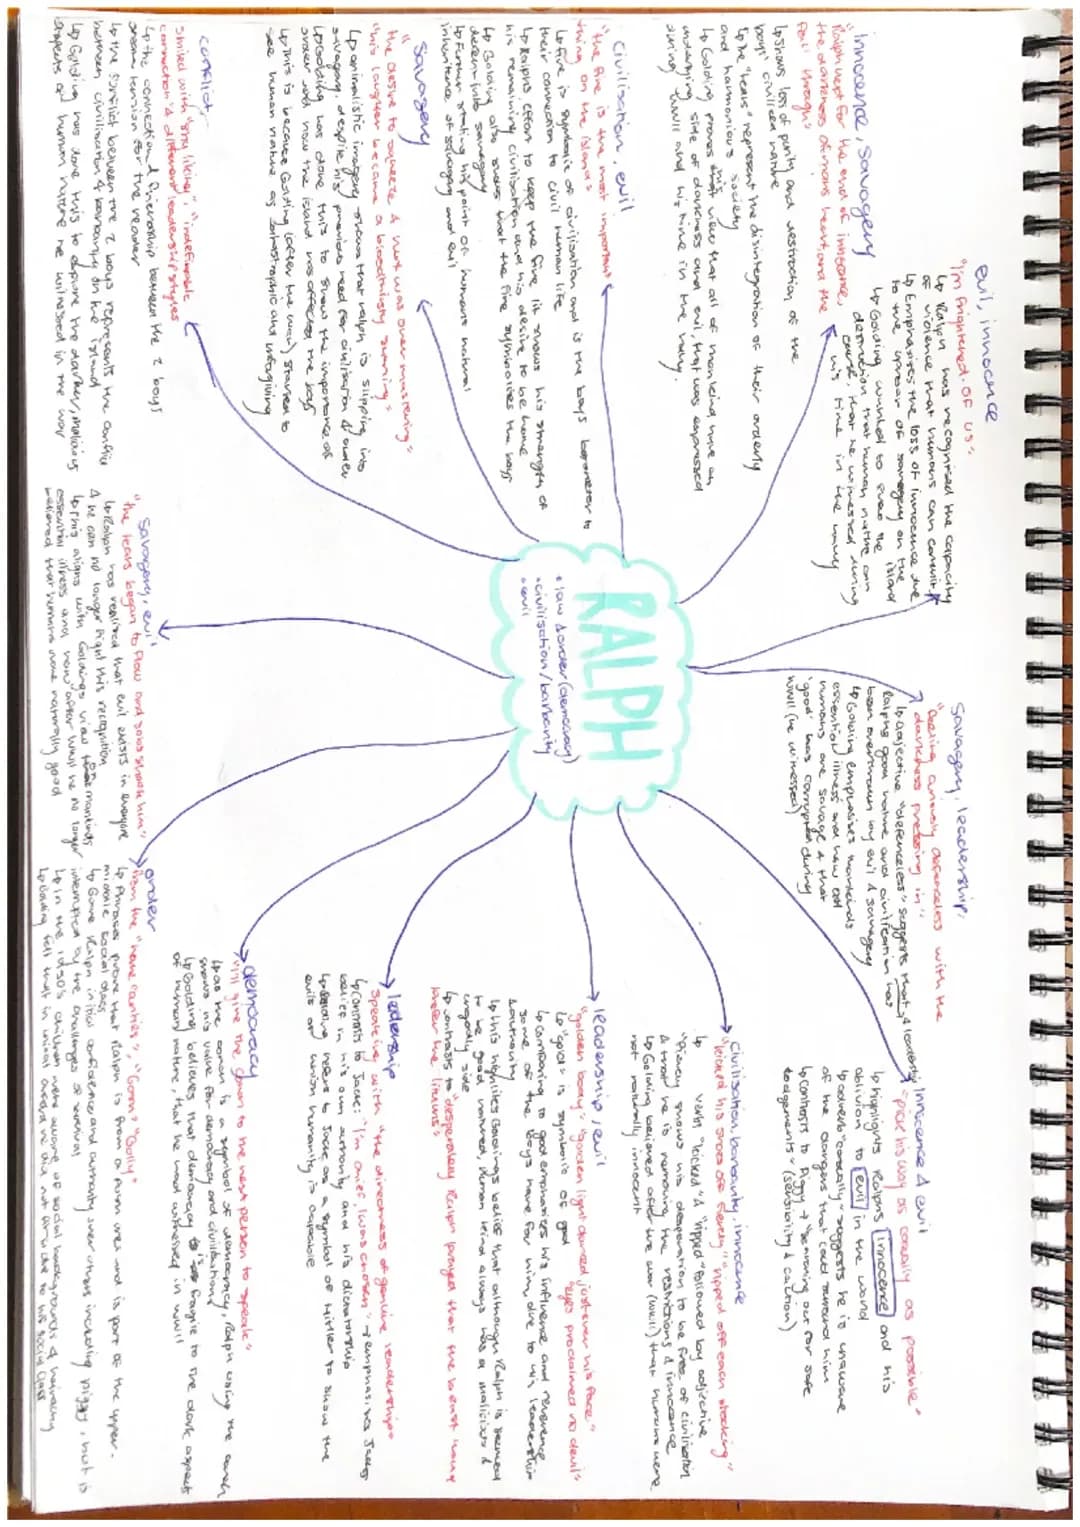 RALPH
• law & order (democracy)
• civilisation / barbarity
• evil
evil, innocence
"I'm frightened. Of us"
↳ Ralph has recognised the capacity
of violence that humans can commit
↳ Emphasises the loss of innocence due
to the uproar of savagery on the island
↳ Golding wanted to show the
destruction that human nature can
cause, that he witnessed during
his time in the navy
Innocence, savagery
"Ralph wept for the end of innocence,
the darkness of man's heart and the
fall through"
↳ shows loss of purity and destruction of the
boys' civilised nature
↳ The "tears" represent the disintegration of their orderly
and harmonious society
↳ Golding proves his view that all of mankind have an
underlying side of darkness and evil, that was expressed
during WWII and his time in the navy.
Civilisation, evil
"the fire is the most important
thing on the island"
↳ Fire is symbolic of civilisation and is the boys barometer to
their connection to civil human life
↳ Ralphs effort to keep the fire lit shows his strength of
his remaining civilisation and his desire to be home
↳ Golding also shows that the fire symbolises the boys
descent into savagery
↳ Further stating his point of humans natural
inheritance of savagery and evil
Savagery
"the desire to squeeze & hurt was over mastering"
"his laughter became a bloodthirsty snarling"
↳ animalistic imagery shows that ralph is slipping into
savagery, despite his previous need for civilisation & order
↳ Golding has done this to show the importance of
order and how the island has affected the boys
↳ This is because Golding (after the war) started to
see human nature as catastrophic and unforgiving
conflict
smiled with "shy liking", "indefinable
connection" & different leadership styles
↳ the connection and friendship between the 2 boys
create tension for the reader
↳ The conflict between the 2 boys represents the conflict
between civilisation & barbarity on the island
↳ Golding has done this to explore the darker, malicious
aspects of human nature he witnessed in the war
Savagery, evil
"the tears began to flow and sobs shook him"
↳ Ralph has realised that evil exists in everyone
& he can no longer fight this recognition
↳ This aligns with Goldings view on mankinds
essential illness and how after WWII he no longer
believed that humans were naturally good
order
From the "home counties", "Gosh" "Golly"
↳ Phrases prove that Ralph is from a and is part of the upper-
middle social class
↳ Gave Ralph initial confidence and authority over others including piggy, but is
interrupted by the challenges of survival
↳ In the 1950's children were aware of social backgrounds & hierarchy
↳ Golding felt that in united he did not to his social class
democracy
"I'll give the conch to the next person to speak"
↳ as the conch is a symbol of democracy, Ralph using the conch
shows his value for democracy and civilisation
↳ Golding believes that democracy is fragile to the dark aspects
of human nature, that he had witnessed in WWII
leadership
Speaking with "the directness of genuine leadership"
↳ Contrasts to Jack: "I'm chief, I was chosen" → emphasises Jacks
belief in his own authority and his dictatorship
↳ Golding refers to Jack as a symbol of Hitler to show the
evils of which humanity is capable
leadership, evil
"golden body" "golden light danced just over his face"
"eyes proclaimed no devil"
↳ "gold" is symbolic of god
↳ Comparing to god emphasises his influence and reverence
some of the boys have for him, due to his leadership
& authority
↳ this highlights Goldings belief that although Ralph is deemed
to be good natured, human kind always has a malicious &
ungodly side
↳ contrasts to "desperately Ralph prayed that the beast would
prefer the littluns"
Civilisation, barbarity, innocence
"kicked his shoes off fiercely" "ripped off each stocking"
↳ verb "kicked" & "ripped" followed by adjective
"fiercely" shows his desperation to be free of civilisation
& that he is removing the restrictions & innocence
↳ Golding believed after the war (WWII) that humans were
not naturally innocent
innocence & evil
"pick his way as casually as possible"
↳ highlights Ralphs innocence and his
oblivion to evil in the world
↳ adverb "casually" suggests he is unaware
of the dangers that could surround him
↳ contrasts to Piggy → "searching out for safe
lodgements" (sensibility & caution)
Savagery, leadership,
"feeling curiously defenceless with the
darkness pressing in"
↳ adjective "defenceless" suggests that
Ralphs good nature and civilisation has
been overthrown by evil & savagery
↳ Golding emphasises mankinds
essential illness and how all
humans are savage & that
'good' has corrupted during
WWII (he witnessed)